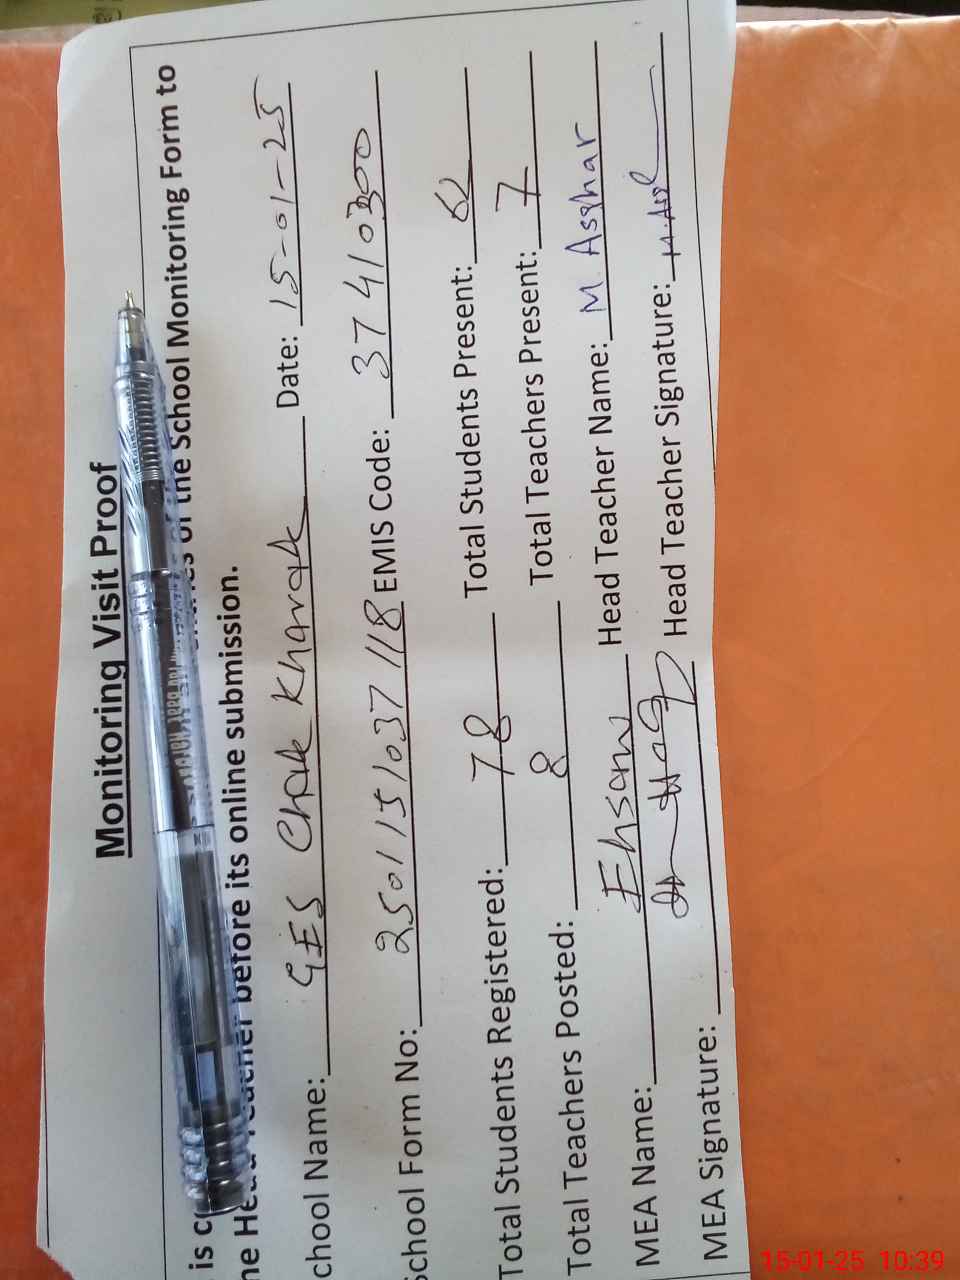 Monitoring Visit Proof
is of the School Monitoring Form to
before its online submission.
chool Name: GES Chak Kharak Date: 15-01-25
School Form No: 2501151037118 EMIS Code: 37410300
Total Students Registered: 78 Total Students Present: 62
Total Teachers Posted: 8 Total Teachers Present: 7
MEA Name: Ehsan Head Teacher Name: M Asghar
MEA Signature: Head Teacher Signature:
15-01-25 10:39